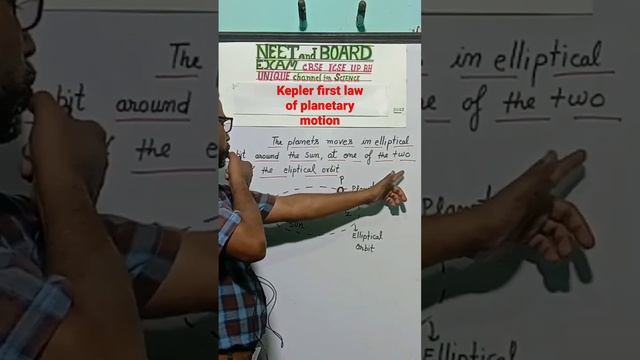 NEET and BOARD
EXAM CBSE ICSE UP BH
UNIQUE channel for SCIENCE
Kepler first law
of planetary
motion
2022
The planets moves in elliptical
bit around the Sun, at one of the two
the eliptical orbit
P
Planet
Sun
Elliptical
orbit
The
in elliptical
bit around
of the two
the e
Planet
Elliptical